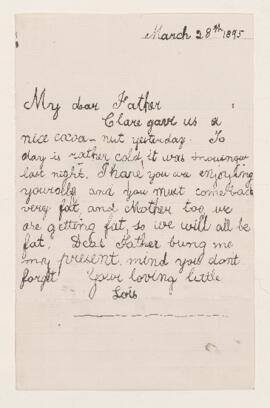 March 28th 1895
My dear Father
Clare gave us a
nice cocoa-nut yesterday. To
day is rather cold, it was
last night. I you are enjoying
and you must come back
very fat, and Mother too, we
are getting fat, so we will all be
fat. Dear Father bring me
my present, mind you dont
forget Your loving little
Lois